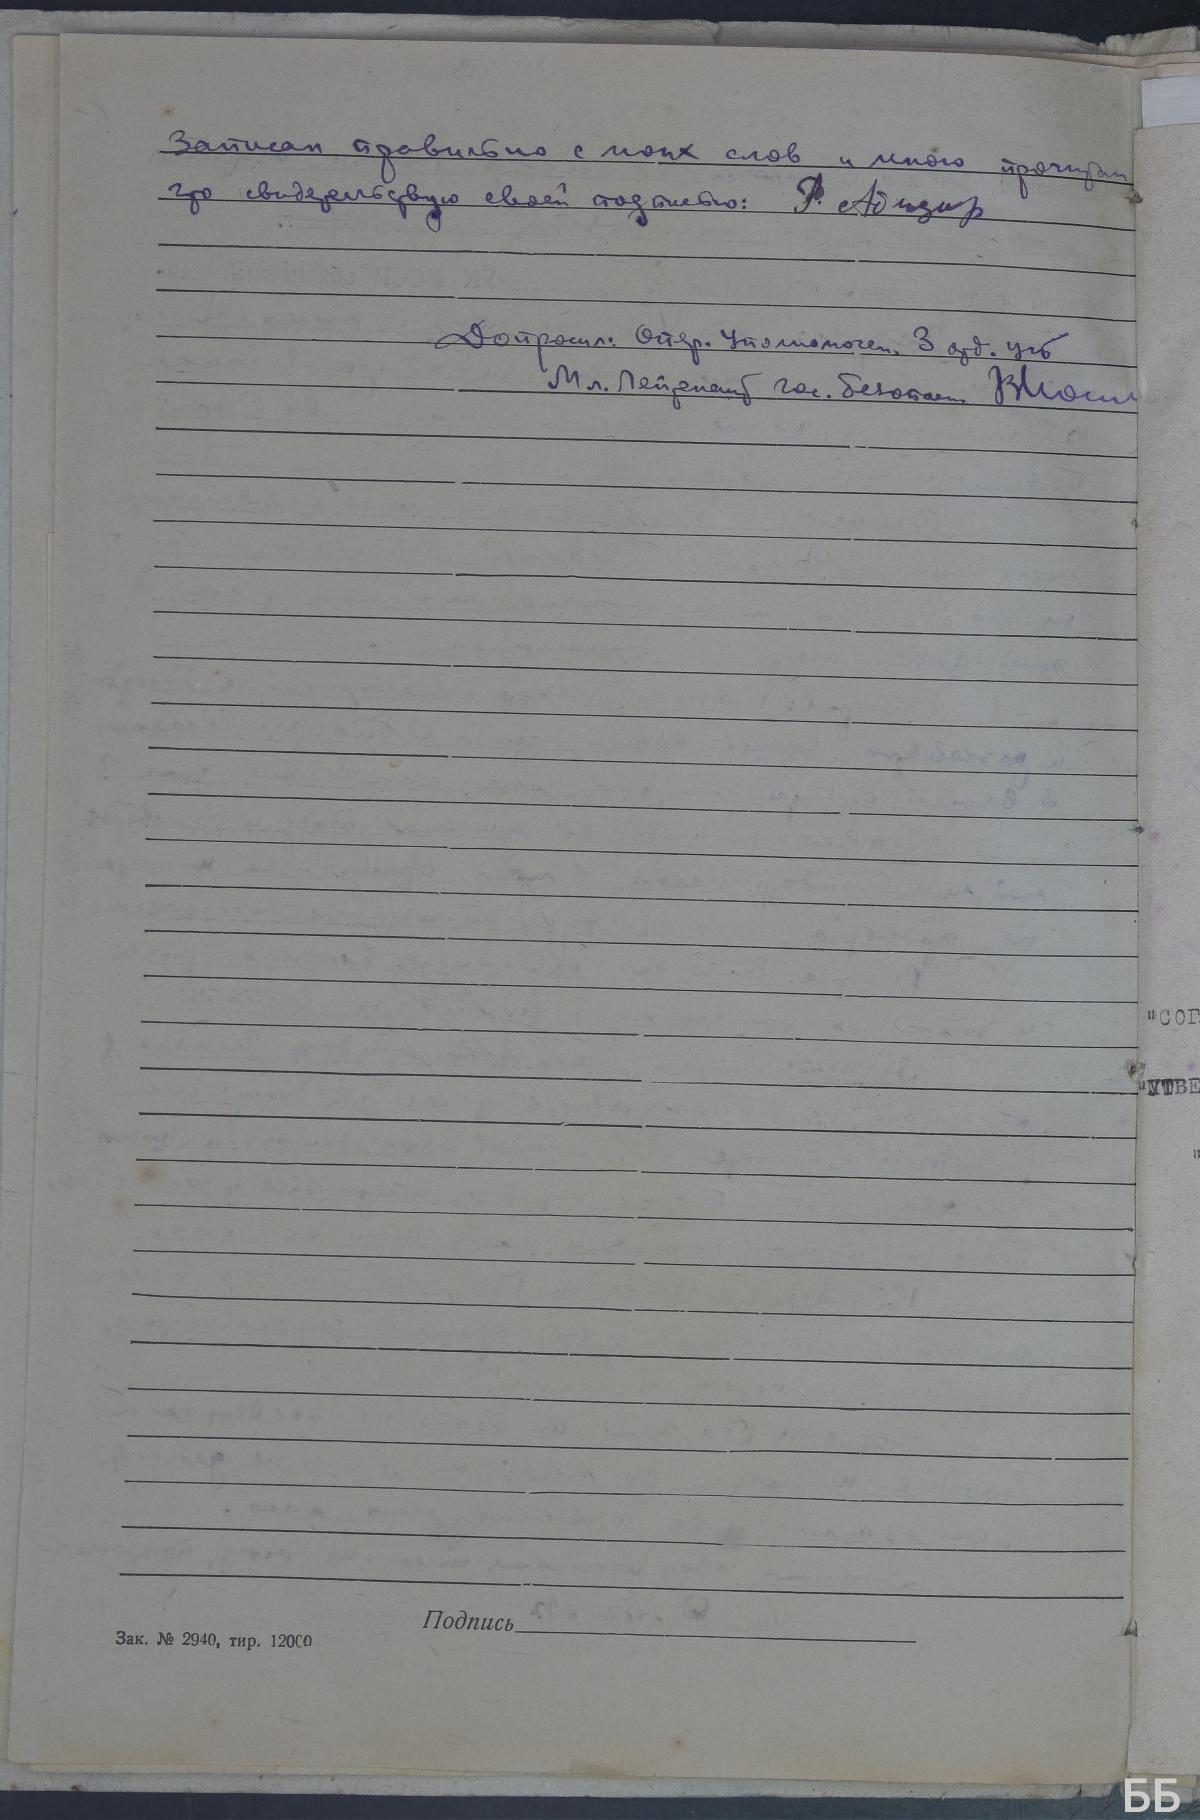 Записан правильно с моих слов и мною прочитан
что свидетельствую своей подписью: Р.
Допросил: Опер. Уполномочен. 3 отд. угб
Мл. Лейтенант гос. безопасн.
"СОГ
"УТВЕ
"
Подпись
Зак. № 2940, тир. 12000
ББ